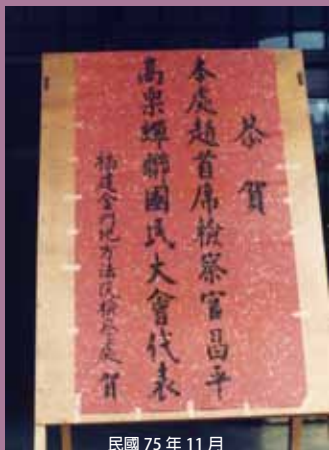 恭賀
本處趙首席檢察官昌平
高票蟬聯國民大會代表
福建金門地方法院檢察處 賀
民國 75 年 11 月